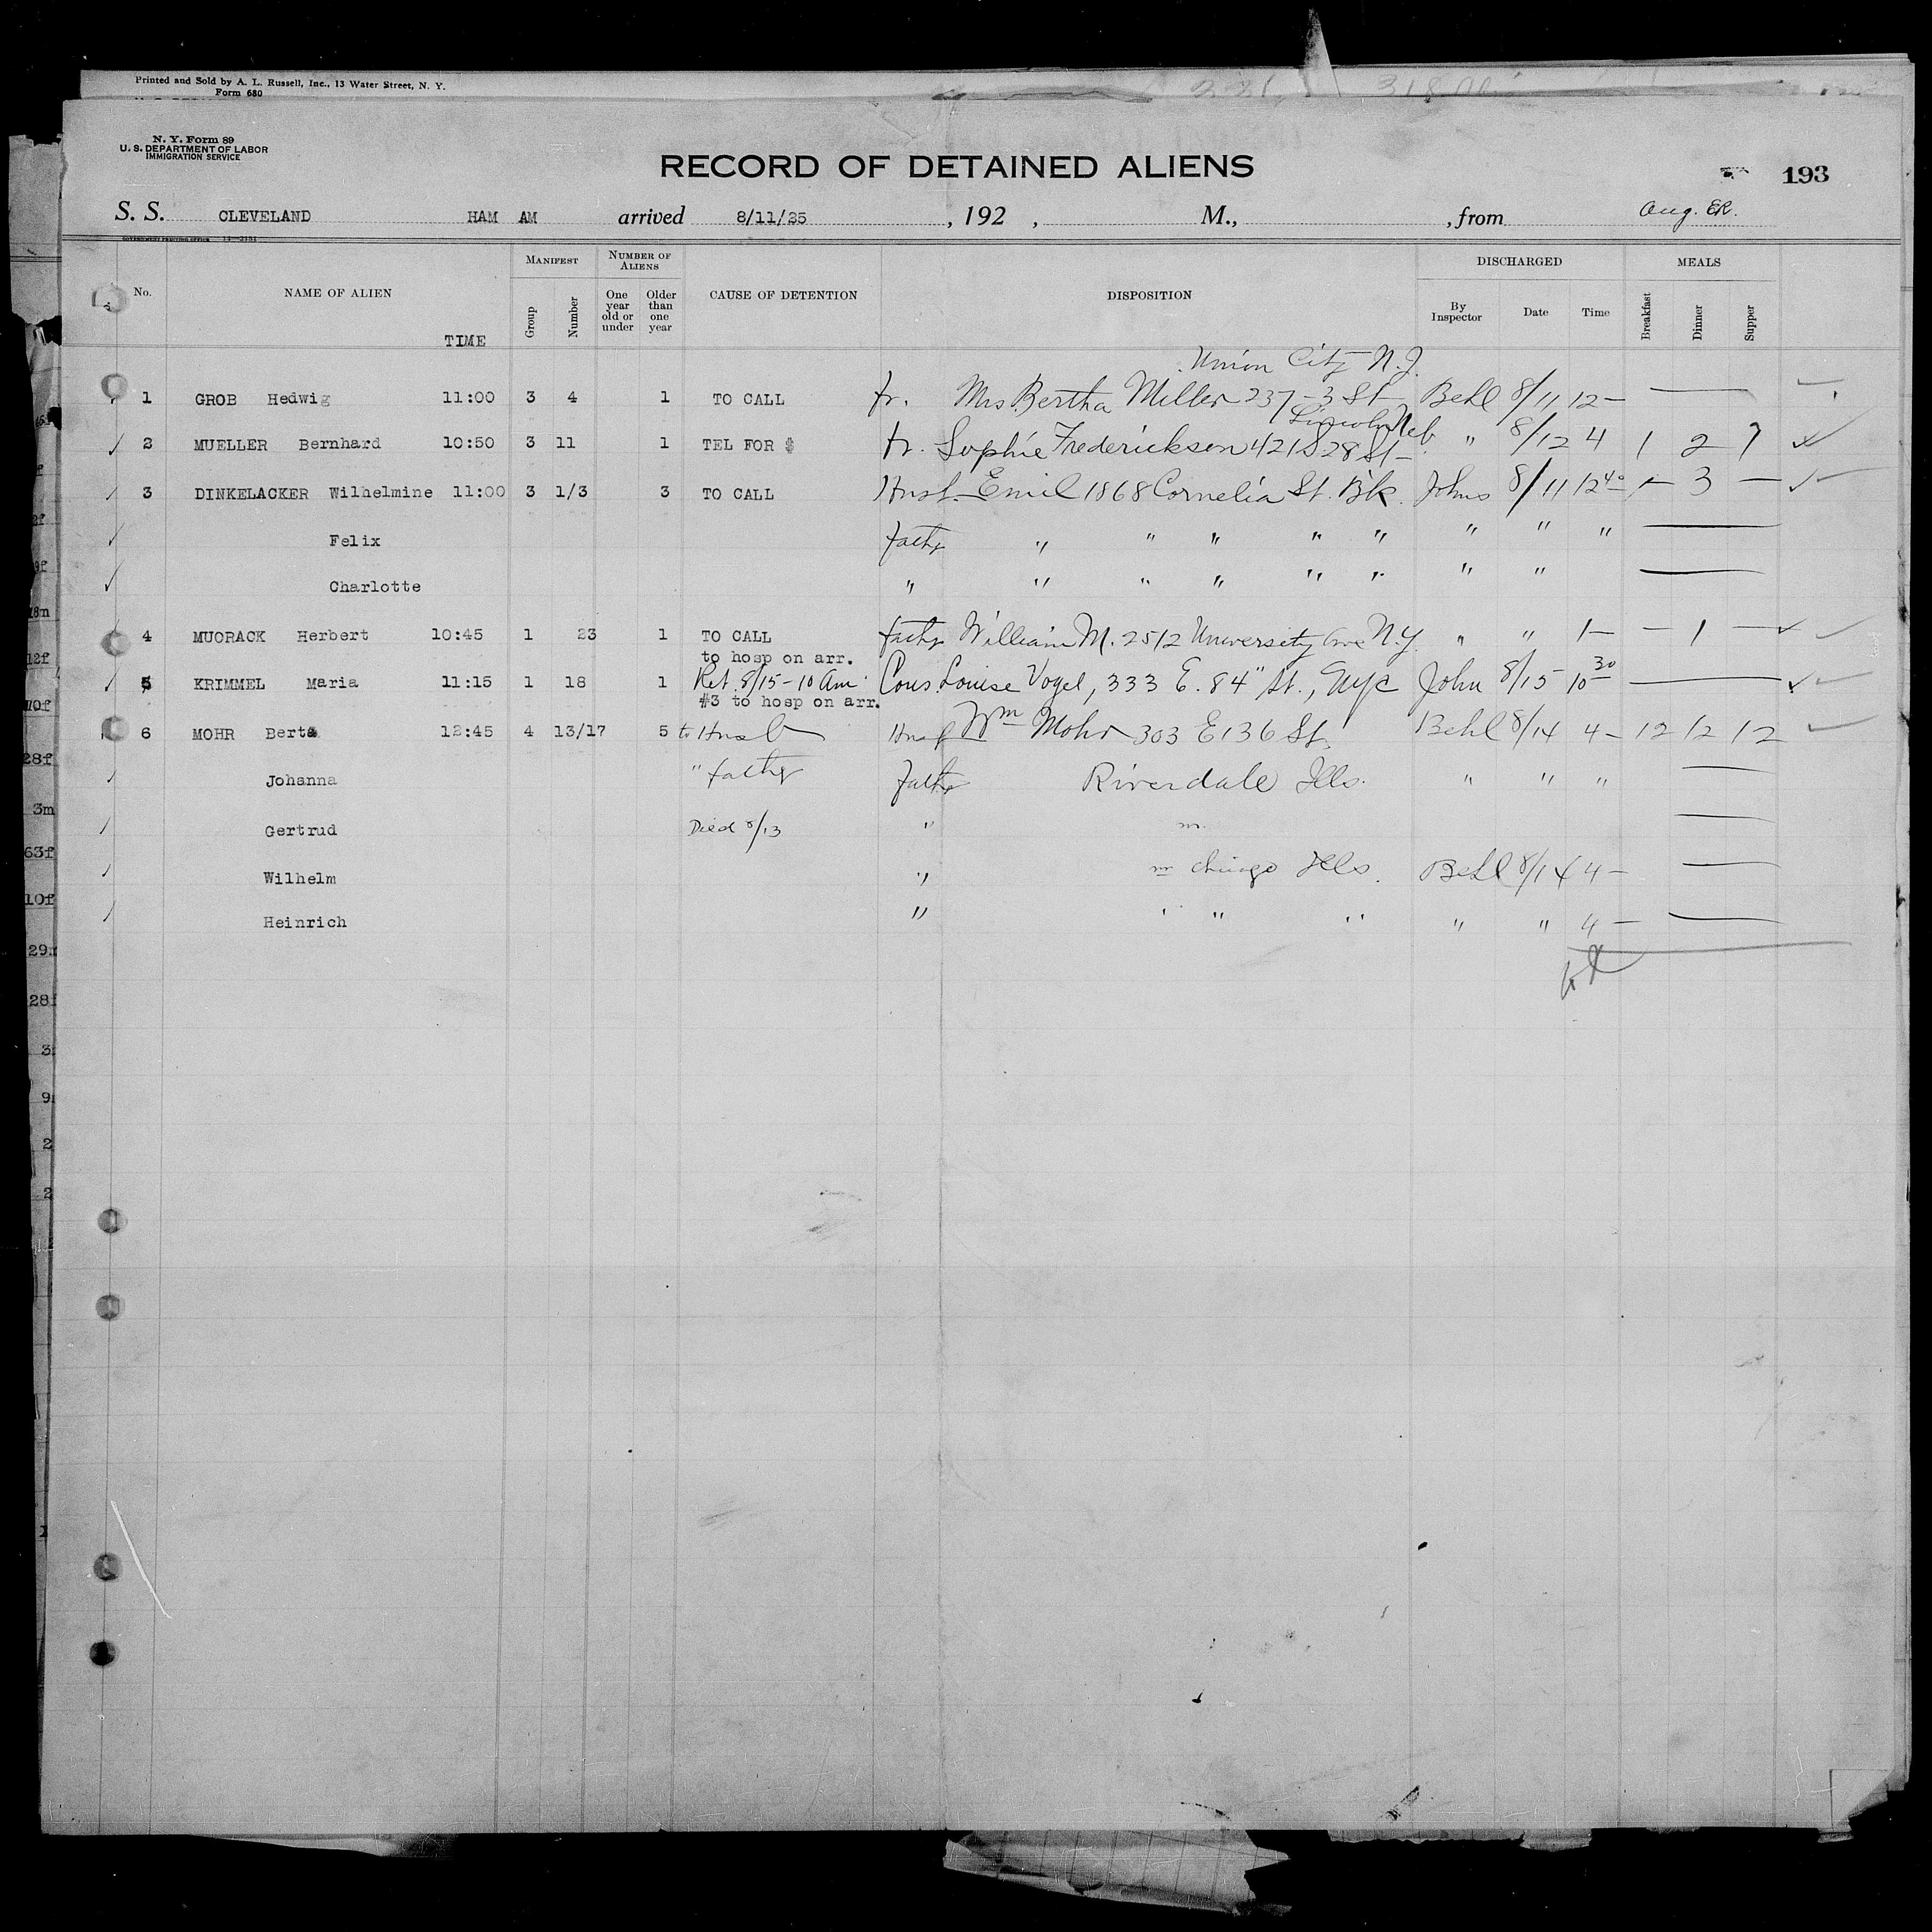 Printed and Sold by A. L. Russell, Inc., 13 Water Street, N. Y.
Form 680
N. Y. Form 89
U. S. DEPARTMENT OF LABOR
IMMIGRATION SERVICE
RECORD OF DETAINED ALIENS
193
S. S. CLEVELAND HAM AM arrived 8/11/25, 192 , M., , from Aug. ER.
No. NAME OF ALIEN TIME MANIFEST Group Number NUMBER OF ALIENS One year old or under Older than one year CAUSE OF DETENTION DISPOSITION DISCHARGED By Inspector Date Time MEALS Breakfast Dinner Supper
Union City N.J.
1 GROB Hedwig 11:00 3 4 1 TO CALL fr. Mrs Bertha Miller 237-3 St Behl 8/11 12—
Lincoln Neb.
2 MUELLER Bernhard 10:50 3 11 1 TEL FOR $ fr. Sophie Frederickson 421 S 28 St " 8/12 4 1 2
3 DINKELACKER Wilhelmine 11:00 3 1/3 3 TO CALL Husb. Emil 1868 Cornelia St. Bk. Johns 8/11 12 40 — 3 —
Felix father " " " " " " " "
Charlotte " " " " " " " "
4 MUORACK Herbert 10:45 1 23 1 TO CALL father William M. 2512 University Ave N.Y. " " 1— — 1 —
to hosp on arr.
5 KRIMMEL Maria 11:15 1 18 1 Ret. 8/15-10 Am Cous. Louise Vogel, 333 E. 84" St., NYC John 8/15 10 30
#3 to hosp on arr.
6 MOHR Berta 12:45 4 13/17 5 to Husb Husb Wm Mohr 303 E 136 St. Behl 8/14 4— 12 12 12
Johanna " father father Riverdale Ills. " " "
Gertrud Died 8/13 "
Wilhelm " Chicago Ills. Behl 8/14 4—
Heinrich " " " " " " 4—